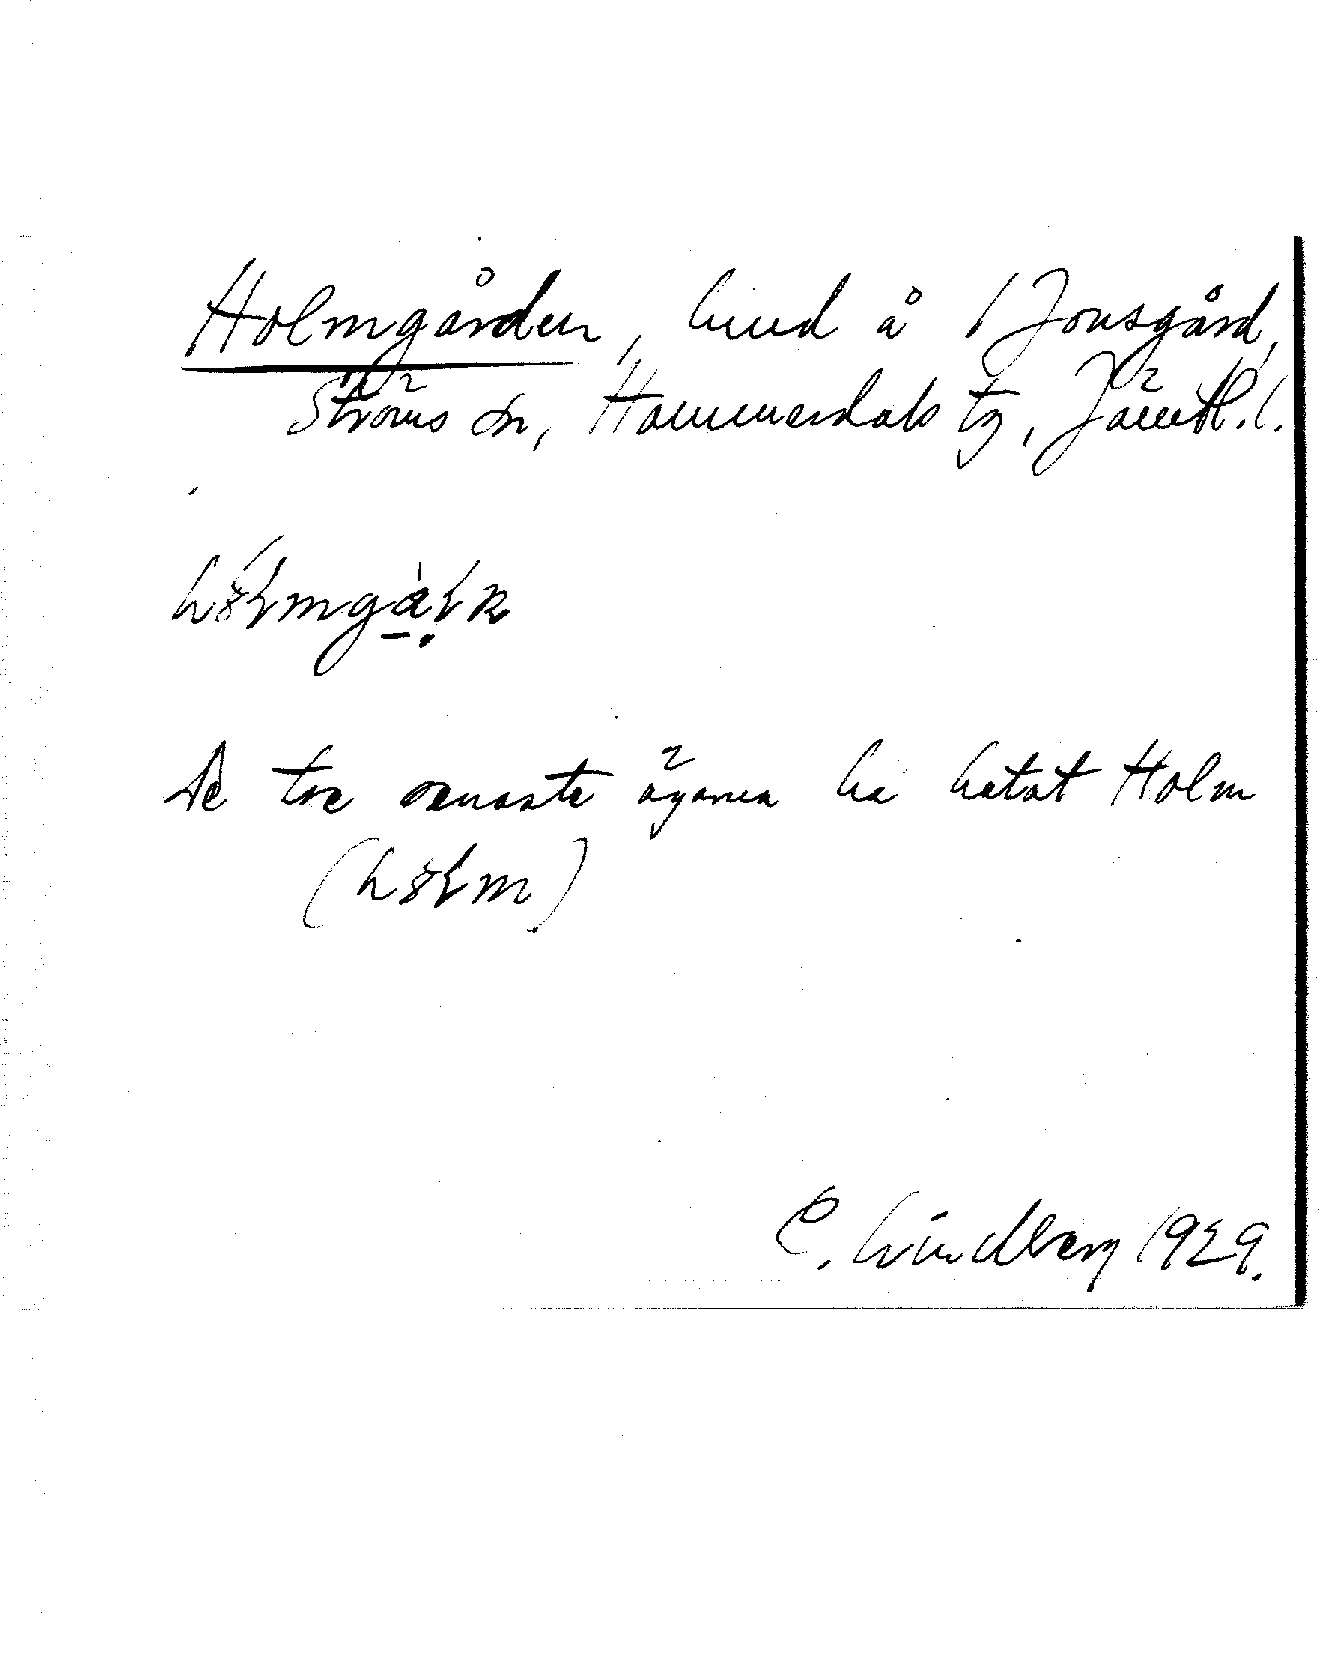 Holmgården, hmd å 1 Jonsgård,
Ströms sn, Hammerdals tg, Jämtl. l.
De tre senaste ägarna ha hetat Holm
C. Lindberg 1929.